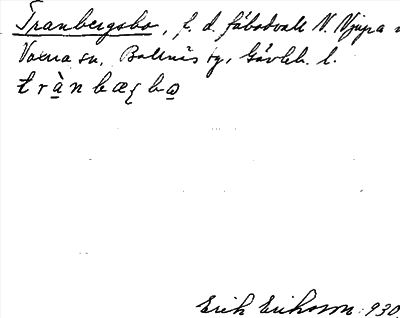 Tranbergsbo, f. d. fäbodvall N. Njupa
Voxna sn, Bollnäs tg, Gävleb. l.
Erik Eriksson 1930